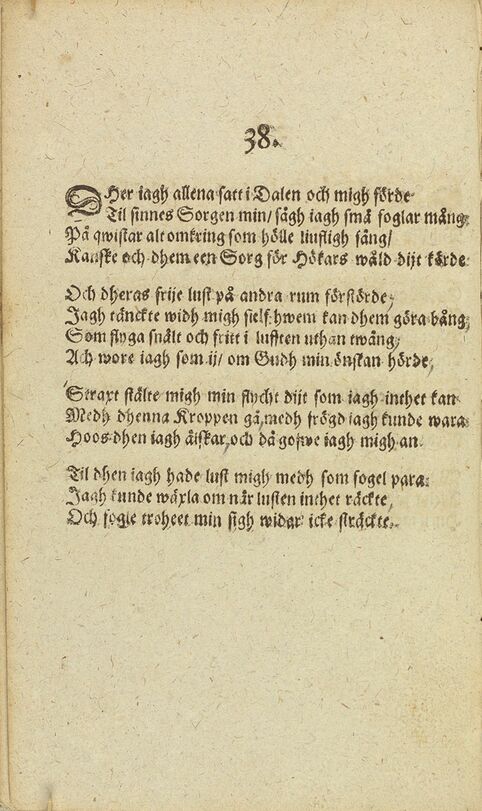 38.
DHer iagh allena satt i Dalen och migh förde
Til sinnes Sorgen min/ sågh iagh små foglar mång,
På qwistar alt omkring som hölle liufligh sång/
Kanske och dhem een Sorg för Hökars wåld dijt körde
Och dheras frije lust på andra rum förstörde,
Jagh tänckte widh migh sielf hwem kan dhem göra bång,
Som flyga snält och fritt i lufften uthan twång,
Ach wore iagh som ij/ om Gudh min önskan hörde,
Straxt stälte migh min flycht dijt som iagh inthet kan
Medh dhenna Kroppen gå, medh frögd iagh kunde wara
Hoos dhen iagh älskar, och då gofwe iagh migh an
Til dhen iagh hade lust migh medh som fogel para.
Jagh kunde wäxla om när lusten inthet räckte,
Och fogle troheet min sigh widar icke sträckte.